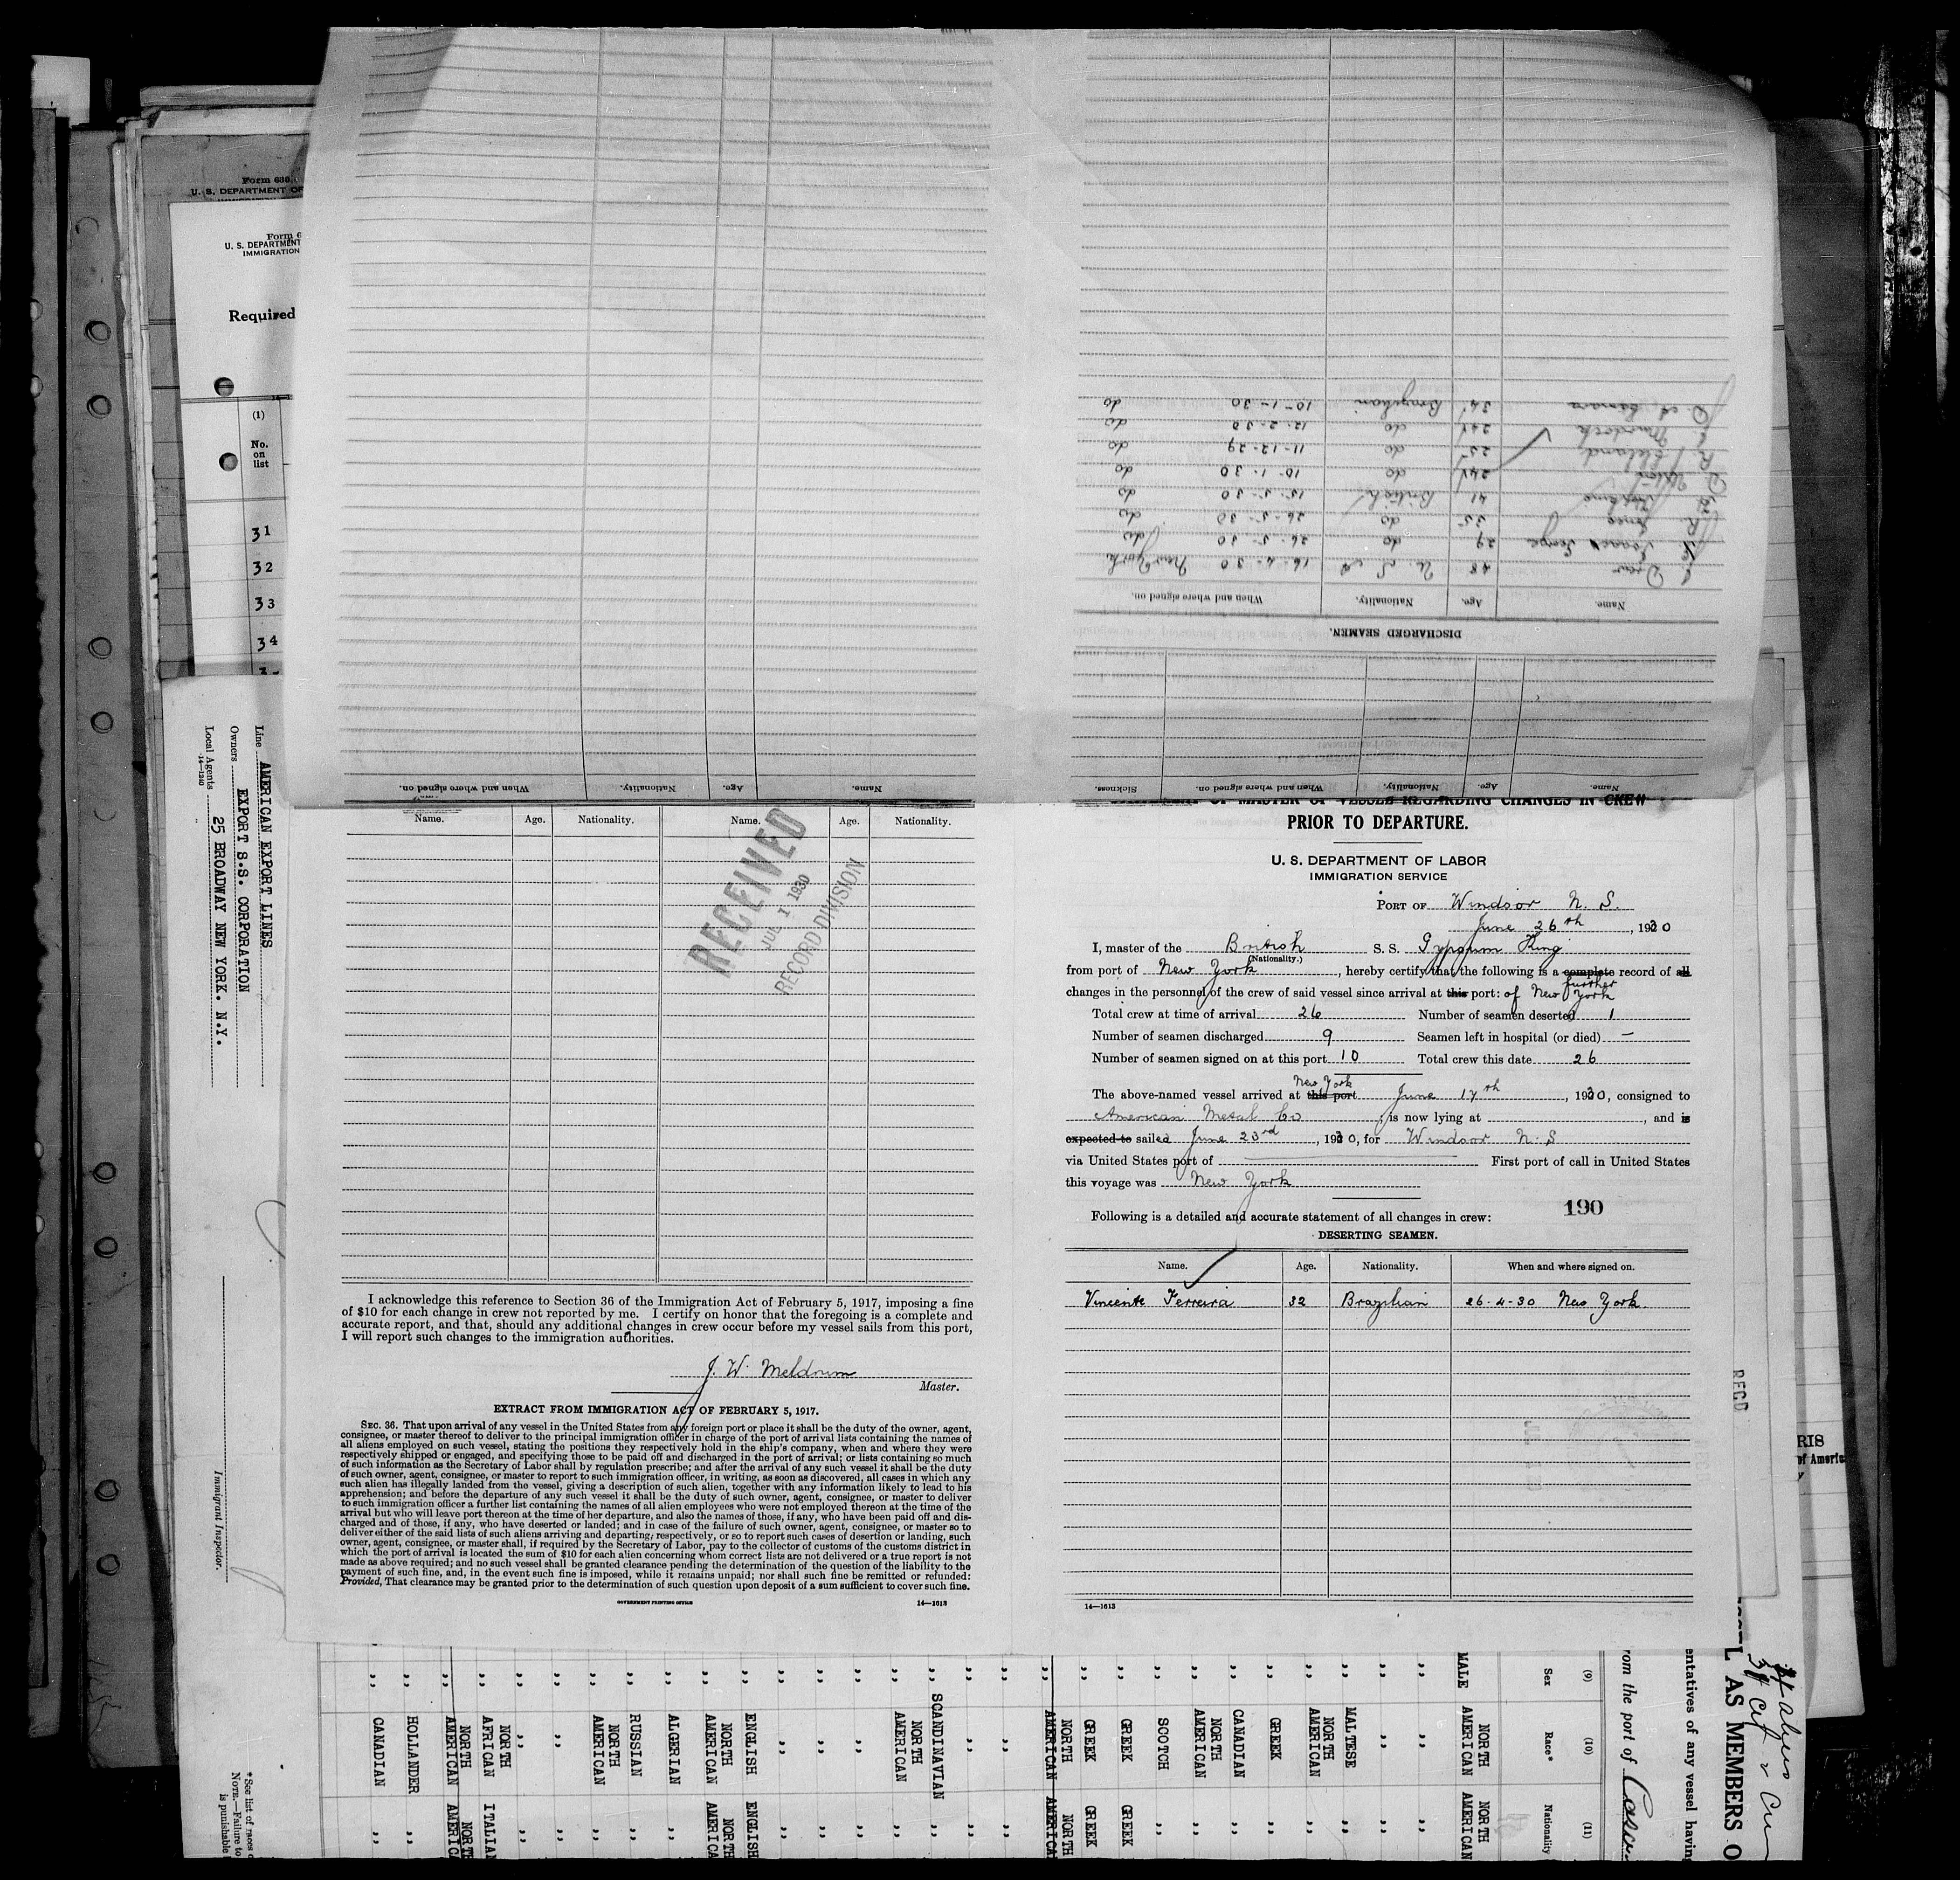 Form 680
U. S. DEPARTMENT OF
Form 6
U. S. DEPARTMENT
IMMIGRATION
Required
(1)
No.
on
list
31
32
33
34
Line AMERICAN EXPORT LINES
Owners EXPORT S.S. CORPORATION
Local Agents 25 BROADWAY NEW YORK. N.Y.
14-1240
Immigrant Inspector.
DISCHARGED SEAMEN.
Name. Age. Nationality. When and where signed on.
J Drew 48 U. S. A 16-4-30 New York
Isaac George 29 do 26-5-30 do
R. Jones 35 do 26-5-30 do
41 British 15-5-30 do
D. 24 do 10-1-30 do
R 25 do 11-12-29 do
J Murdock 24 do 12-2-30 do
D. A. 34 Brazilian 10-1-30 do
Name. Age. Nationality. When and where signed on. Sickness.
Name. Age. Nationality. When and where signed on.
Name. Age. Nationality. Name. Age. Nationality.
RECEIVED
JUL 1 1930
RECORD DIVISION
I acknowledge this reference to Section 36 of the Immigration Act of February 5, 1917, imposing a fine
of $10 for each change in crew not reported by me. I certify on honor that the foregoing is a complete and
accurate report, and that, should any additional changes in crew occur before my vessel sails from this port,
I will report such changes to the immigration authorities.
J. W. Meldrum
Master.
EXTRACT FROM IMMIGRATION ACT OF FEBRUARY 5, 1917.
SEC. 36. That upon arrival of any vessel in the United States from any foreign port or place it shall be the duty of the owner, agent,
consignee, or master thereof to deliver to the principal immigration officer in charge of the port of arrival lists containing the names of
all aliens employed on such vessel, stating the positions they respectively hold in the ship's company, when and where they were
respectively shipped or engaged, and specifying those to be paid off and discharged in the port of arrival; or lists containing so much
of such information as the Secretary of Labor shall by regulation prescribe; and after the arrival of any such vessel it shall be the duty
of such owner, agent, consignee, or master to report to such immigration officer, in writing, as soon as discovered, all cases in which any
such alien has illegally landed from the vessel, giving a description of such alien, together with any information likely to lead to his
apprehension; and before the departure of any such vessel it shall be the duty of such owner, agent, consignee, or master to deliver
to such immigration officer a further list containing the names of all alien employees who were not employed thereon at the time of the
arrival but who will leave port thereon at the time of her departure, and also the names of those, if any, who have been paid off and dis-
charged and of those, if any, who have deserted or landed; and in case of the failure of such owner, agent, consignee, or master so to
deliver either of the said lists of such aliens arriving and departing, respectively, or so to report such cases of desertion or landing, such
owner, agent, consignee, or master shall, if required by the Secretary of Labor, pay to the collector of customs of the customs district in
which the port of arrival is located the sum of $10 for each alien concerning whom correct lists are not delivered or a true report is not
made as above required; and no such vessel shall be granted clearance pending the determination of the question of the liability to the
payment of such fine, and, in the event such fine is imposed, while it remains unpaid; nor shall such fine be remitted or refunded:
Provided, That clearance may be granted prior to the determination of such question upon deposit of a sum sufficient to cover such fine.
GOVERNMENT PRINTING OFFICE 14-1613
OF MASTER OF VESSEL REGARDING CHANGES IN CREW
PRIOR TO DEPARTURE.
U. S. DEPARTMENT OF LABOR
IMMIGRATION SERVICE
PORT OF Windsor N. S.
June 26th, 1930
I, master of the British S. S. Gypsum King
(Nationality.)
from port of New York, hereby certify that the following is a complete record of all
further
changes in the personnel of the crew of said vessel since arrival at this port: of New York
Total crew at time of arrival 26 Number of seamen deserted 1
Number of seamen discharged 9 Seamen left in hospital (or died) —
Number of seamen signed on at this port 10 Total crew this date 26
New York
The above-named vessel arrived at this port June 17th, 1930, consigned to
American Metal Co, is now lying at , and is
expected to sailed June 23rd, 1930, for Windsor N. S
via United States port of First port of call in United States
this voyage was New York
190
Following is a detailed and accurate statement of all changes in crew:
DESERTING SEAMEN.
Name. Age. Nationality. When and where signed on.
Vincente Ferreira 32 Brazilian 26-4-30 New York.
14-1613
RECD
RIS
of America
(9) (10) (11)
Sex Race* Nationality
MALE NORTH AMERICAN NORTH AMERICAN
MALTESE
NORTH AMERICAN
GREEK
CANADIAN
NORTH AMERICAN
SCOTCH
GREEK GREEK
GREEK GREEK
NORTH AMERICAN NORTH AMERICAN
SCANDINAVIAN
NORTH AMERICAN
ENGLISH ENGLISH
NORTH AMERICAN NORTH AMERICA
ALGERIAN
RUSSIAN
NORTH AMERICAN
NORTH AFRICAN ITALIAN
NORTH AMERICAN NORTH AMERIC
HOLLANDER
CANADIAN
*See list of races
NOTE.—Failure to
is punishable
rom the port of
entatives of any vessel having
L AS MEMBERS O